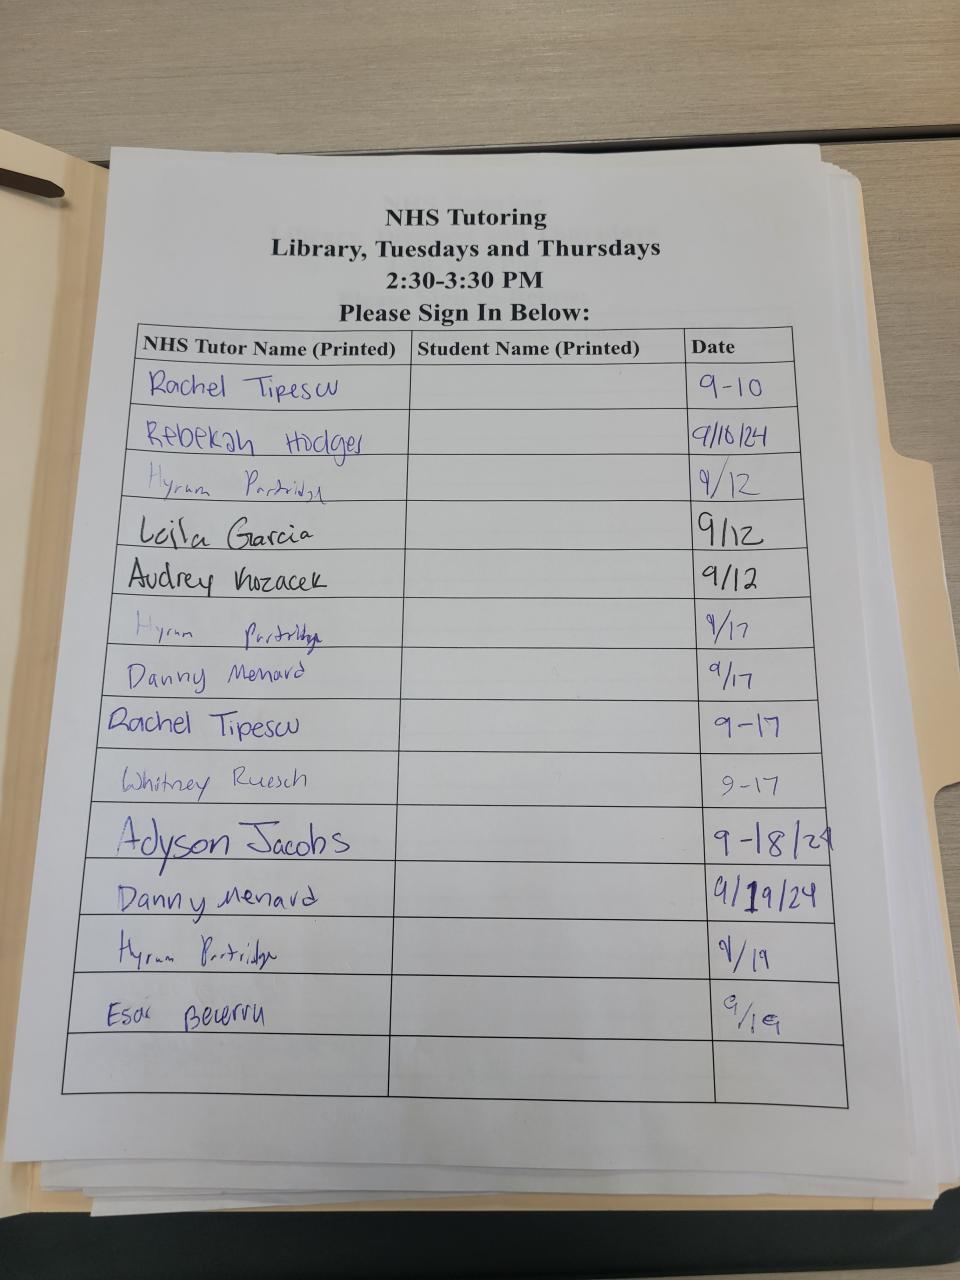 NHS Tutoring
Library, Tuesdays and Thursdays
2:30-3:30 PM
Please Sign In Below:
NHS Tutor Name (Printed) Student Name (Printed) Date
Rachel Tipescu 9-10
Rebekah Hodges 9/10/24
Hyrum Partridge 9/12
Leila Garcia 9/12
Audrey Kozacek 9/12
Hyrum Partridge 9/17
Danny Menard 9/17
Rachel Tipescu 9-17
Whitney Ruesch 9-17
Adyson Jacobs 9-18/24
Danny Menard 9/19/24
Hyrum Partridge 9/19
Esai Becerra 9/19